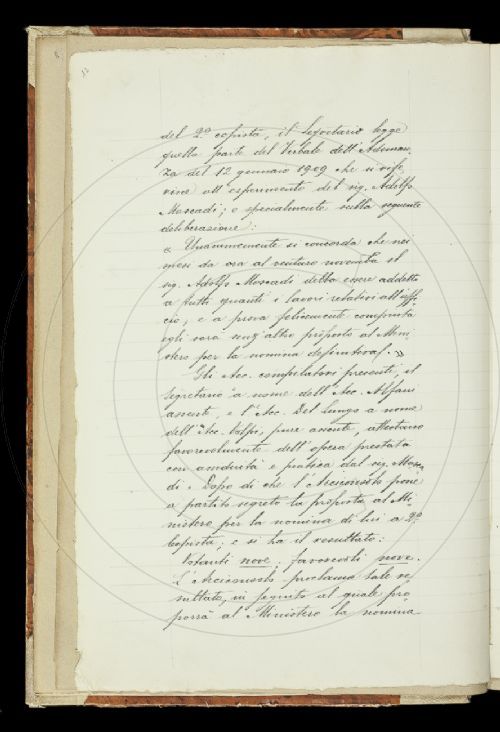 12
del 2º copista, il Segretario legge
quella parte del Verbale dell'Adunan-
za del 12 gennaio 1909 che si rife-
risce all'esperimento del sig. Adolfo
Moscadi; e specialmente sulla seguente
deliberazione:
« Unanimemente si concorda che nei
mesi da ora al venturo novembre il
sig. Adolfo Moscadi debba essere addetto
a tutti quanti i lavori relativi all'uffi-
cio; e a prova felicemente compiuta
egli sarà senz'altro proposto al Mini-
stero per la nomina definitiva. »
Gli Acc. compilatori presenti, il
Segretario a nome dell'Acc. Alfani
assente, e l'Acc. Del Lungo a nome
dell'Acc. Volpi, pure assente, attestano
favorevolmente dell'opera prestata
con assiduità e pratica dal sig. Mosca-
di. Dopo di che l'Arciconsolo pone
a partito segreto la proposta al Mi-
nistero per la nomina di lui a 2º
Copista; e si ha il resultato:
Votanti nove; favorevoli nove.
L'Arciconsolo proclama tale re-
sultato, in seguito al quale pro-
porrà al Ministero la nomina